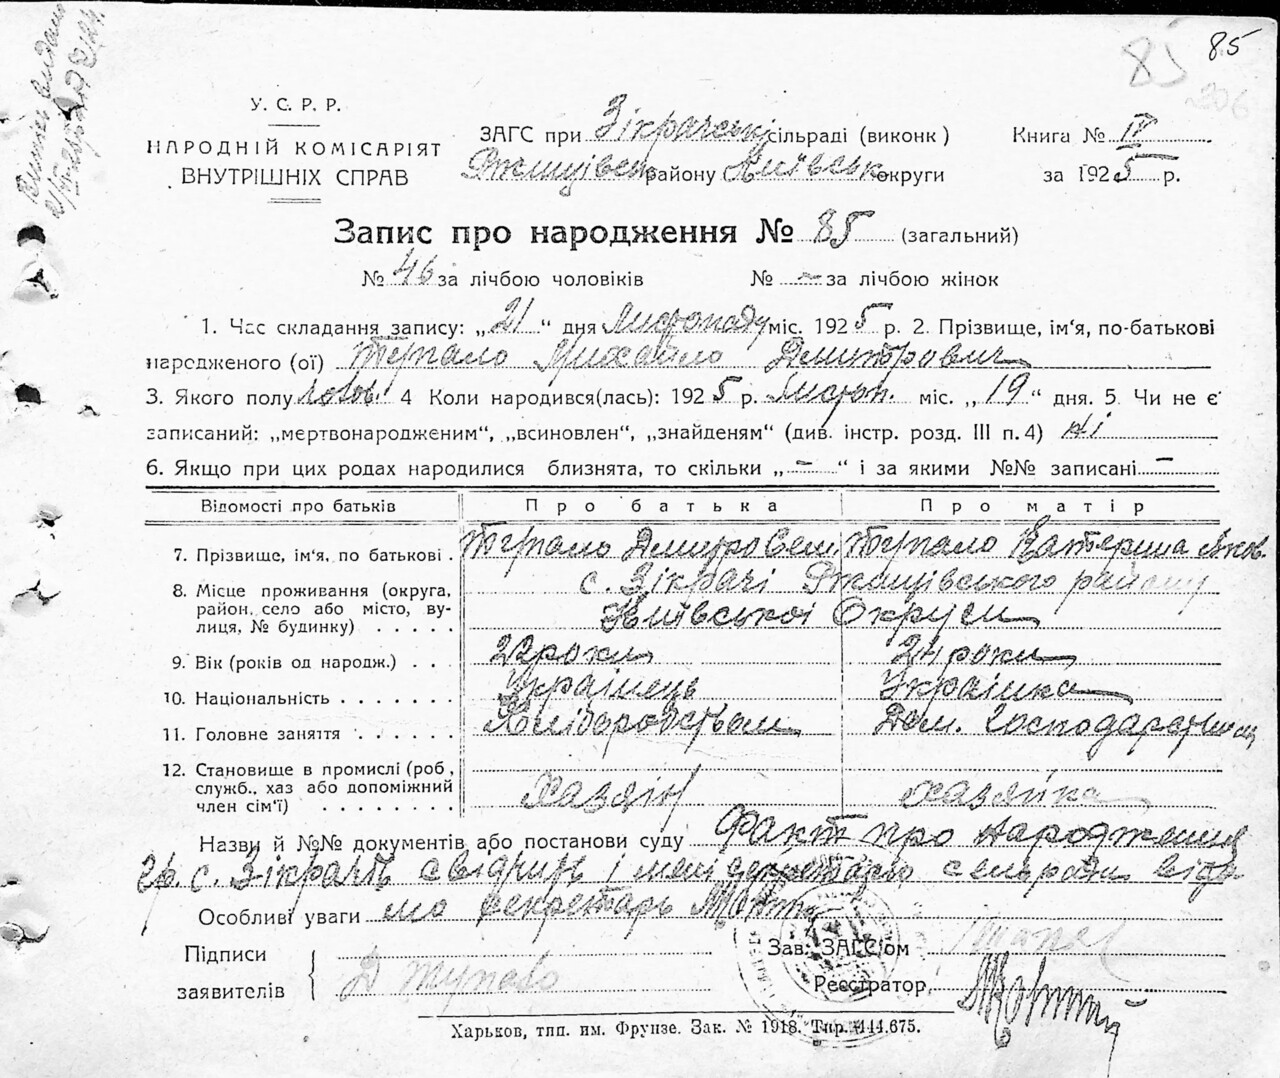 85
85
206
У. С. Р. Р.
НАРОДНІЙ КОМІСАРІЯТ
ВНУТРІШНІХ СПРАВ
ЗАГС при Зікрачські сільраді (виконк)
Ржищівськ району Київськ округи
Книга № IV
за 1925 р.
Запис про народження № 85 (загальний)
№ 46 за лічбою чоловіків № - за лічбою жінок
1. Час складання запису: „21“ дня Листопаду міс. 1925 р. 2. Прізвище, ім'я, по-батькові
народженого (ої) Тупало Михайло Дмитрович
3. Якого полу чолов. 4 Коли народився(лась): 1925 р. Листоп. міс. „19“ дня. 5 Чи не є
записаний: „мертвонародженим“, „всиновлен“, „знайденям“ (див. інстр. розд. III п. 4) ні
6. Якщо при цих родах народилися близнята, то скільки „-“ і за якими №№ записані -
Відомості про батьків Про батька Про матір
7. Прізвище, ім'я, по батькові. Тупало Дмитро Сем. Тупало Катерина Яков.
8. Місце проживання (округа, район, село або місто, вулиця, № будинку) с. Зікрачі Ржищівського району
Київської Округи
9. Вік (років од народж.) 22 роки 24 роки
10. Національність Українець Українка
11. Головне заняття Хліборобством Дом. Господарством
12. Становище в промислі (роб, служб., хаз або допоміжний член сім'ї) Хазяїн хазяйка
Назви й №№ документів або постанови суду Факт про народження
гр. с. Зікрачів свідчить і мені секретарю сельради відо-
Особливі уваги мо секретарь
Підписи
заявителів Д Тупало
Зав. ЗАГС'ом
Реєстратор
Харьков, тип. им. Фрунзе. Зак. № 1918. Тир. 444.675.